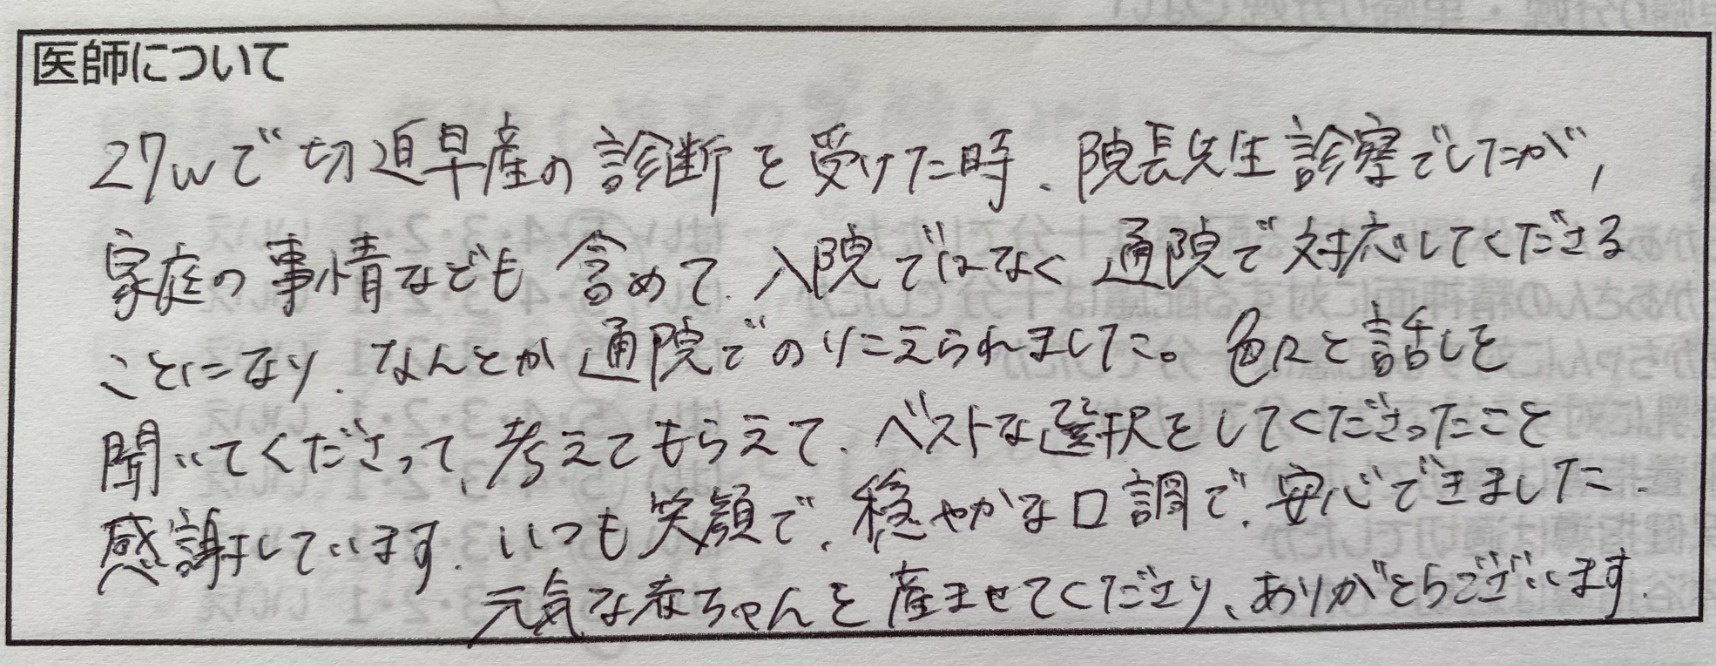 医師について
27wで切迫早産の診断を受けた時、院長先生診察でしたが、
家庭の事情なども含めて、入院ではなく通院で対応してくださる
ことになり、なんとか通院でのりこえられました。色々と話しを
聞いてくださって、考えてもらえて、ベストな選択をしてくださったこと
感謝しています。いつも笑顔で、穏やかな口調で、安心できました。
元気な赤ちゃんを産ませてくださり、ありがとうございます。